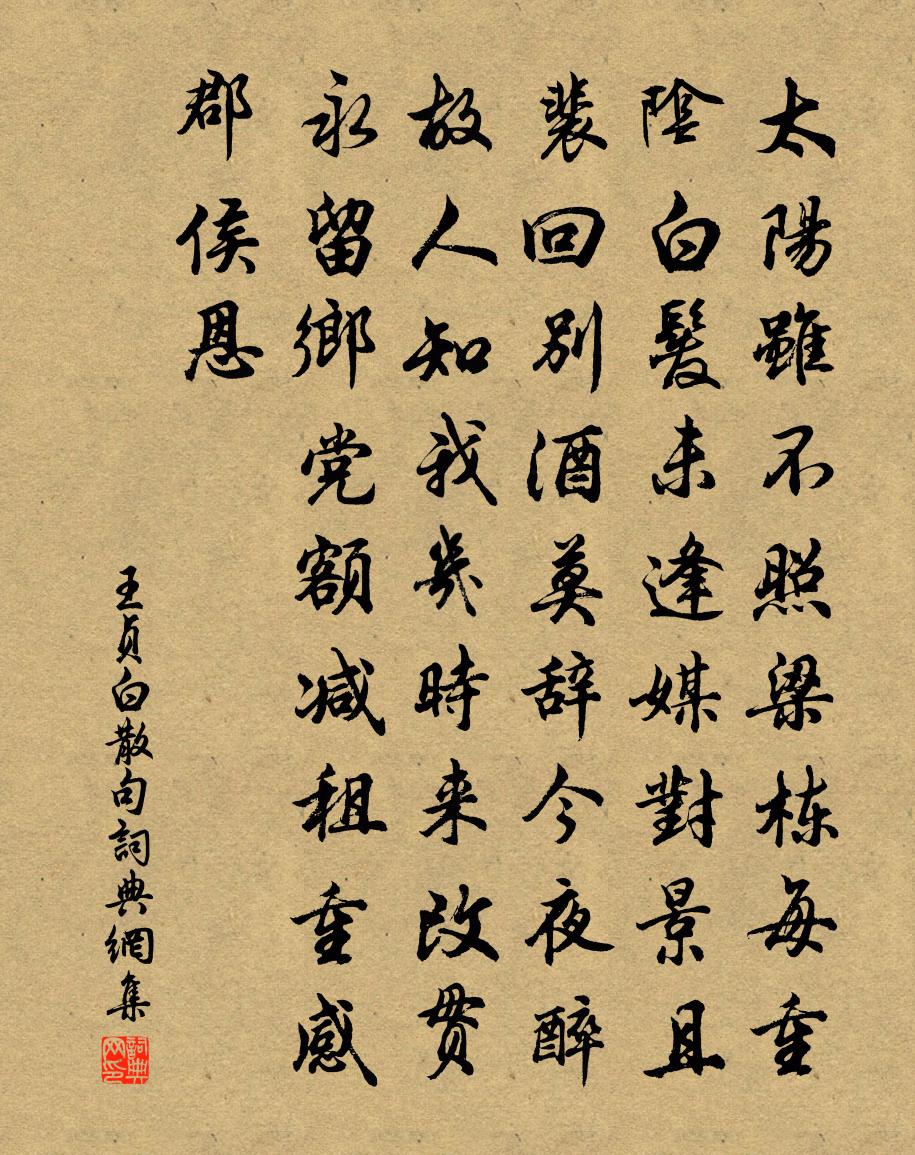 太陽雖不照梁栋每重
陰白髮未逢媒對景且
裴回別酒莫辞今夜醉
故人知我幾時来改贯
永留鄉党額减租重感
郡侯恩
王貞白散句詞典網集
詞典网印